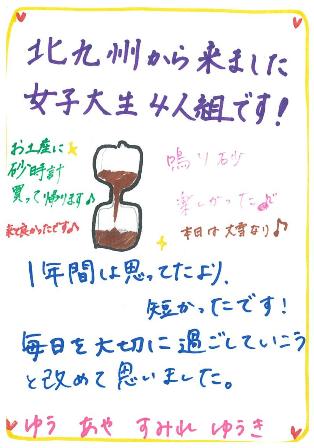 北九州から来ました
女子大生4人組です!
お土産に
砂時計
買って帰ります♪
来て良かったです♪
鳴り砂
楽しかった
本日は大雪なり♪
1年間は思ってたより、
短かったです!
毎日を大切に過ごしていこう
と改めて思いました。
ゆう あや すみれ ゆうき